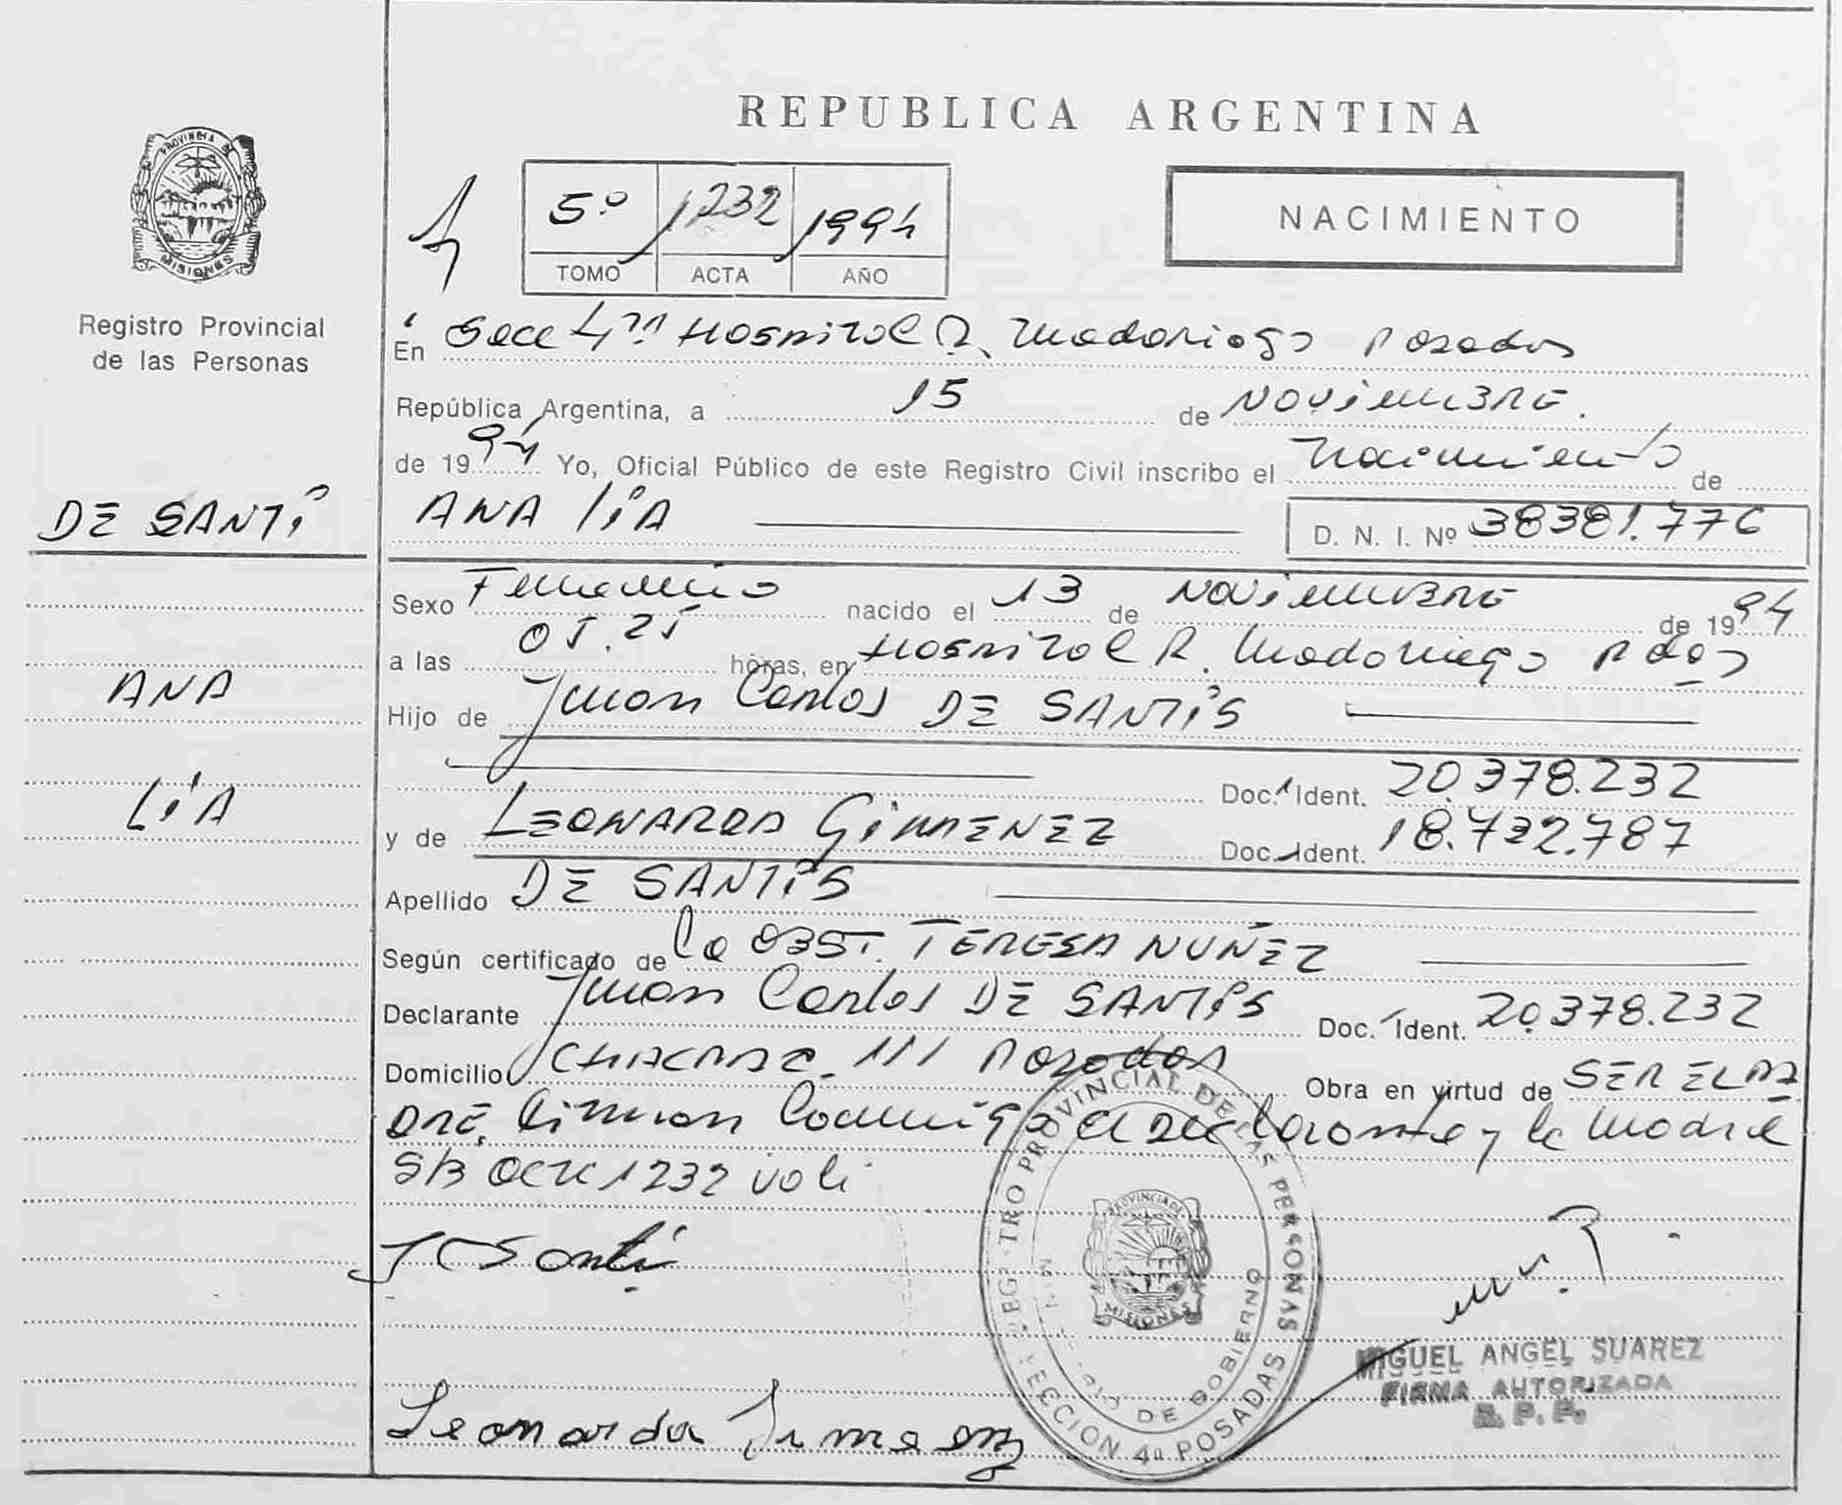 REPUBLICA ARGENTINA
PROVINCIA DE
MISIONES
Registro Provincial
de las Personas
5º 1232 1994
TOMO ACTA AÑO
NACIMIENTO
En Secc 4ta Hospital R. Madariaga Posadas
República Argentina, a 15 de NOVIEMBRE.
de 1994 Yo, Oficial Público de este Registro Civil inscribo el Nacimiento de
DE SANTI
ANA LIA
D. N. I. Nº 38381.776
Sexo Femenino nacido el 13 de NOVIEMBRE de 1994
a las 05.25 horas, en HOSPITAL R. Madariaga Pdas
ANA
Hijo de Juan Carlos DE SANTIS
Doc. Ident. 20.378.232
LIA
y de LEONARDA GIMENEZ Doc. Ident. 18.732.787
Apellido DE SANTIS
Según certificado de la OBST. TERESA NUÑEZ
Declarante Juan Carlos DE SANTIS Doc. Ident. 20.378.232
Domicilio CHACRA 111 Posadas Obra en virtud de SER EL PA
DRE. Firman Conmigo el declarante y la Madre
S/B 1232
Santi
Leonarda Jimenez
REGISTRO PROVINCIAL DE LAS PERSONAS
SECCION 4a POSADAS
DE GOBIERNO
PROVINCIA DE
MISIONES
MIGUEL ANGEL SUAREZ
FIRMA AUTORIZADA
R. P. P.